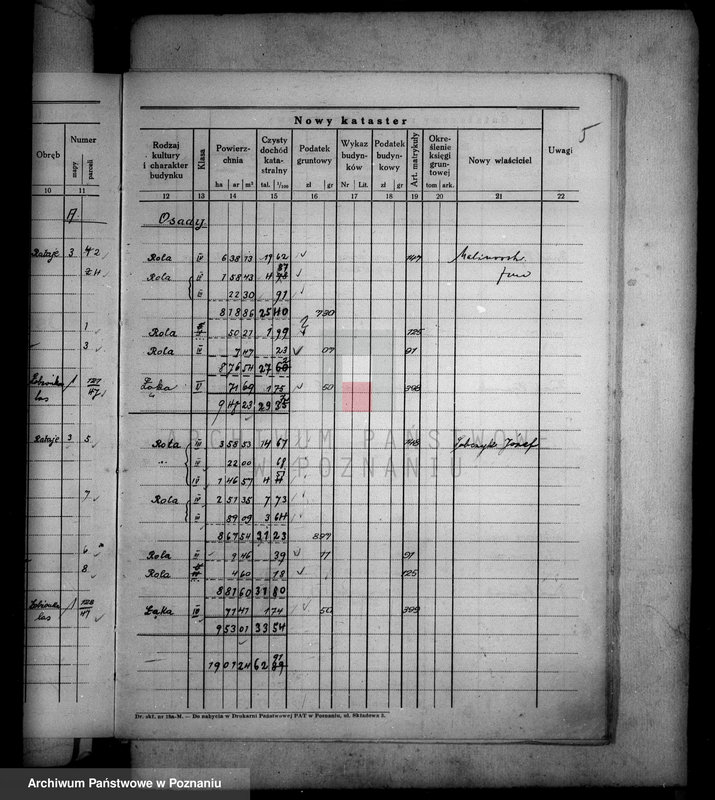 5
Nowy kataster
Obręb
Numer
mapy
parceli
Rodzaj kultury i charakter budynku
Klasa
Powierzchnia
ha ar m²
Czysty dochód katastralny
tal. 1/100
Podatek gruntowy
zł gr
Wykaz budynków
Nr Lit.
Podatek budynkowy
zł gr
Art. matrykuły
Określenie księgi gruntowej
tom ark.
Nowy właściciel
Uwagi
10 11 12 13 14 15 16 17 18 19 20 21 22
A
Osady
Rataje 3 42 Rola IV 6 38 73 19 62
Rola 1 58 43
22 30 91
8 18 86 25 40 730
1 Rola 50 21 1 99 125
3 Rola IV 7 47 23 07 91
8 76 54 27
las Łąka V 71 69 1 75 50 398
9 48 23 29
Rataje 3 5 Rola III 3 58 53 14 67 148 Józef
22 00
IV 1 46 57
7 Rola IV 2 51 35 7 73
89 09 3 64
8 67 54 31 23 897
6 Rola 9 46 39 11 91
8 Rola 4 60 18 125
8 81 60 31 80
las 128/47 Łąka 71 41 1 74 50 399
9 53 01 33 54
19 01 24 62
ARCHIWUM PAŃSTWOWE
W POZNANIU
Dr. skł. nr 18a-M. — Do nabycia w Drukarni Państwowej PAT w Poznaniu, ul. Składowa 3.
Archiwum Państwowe w Poznaniu